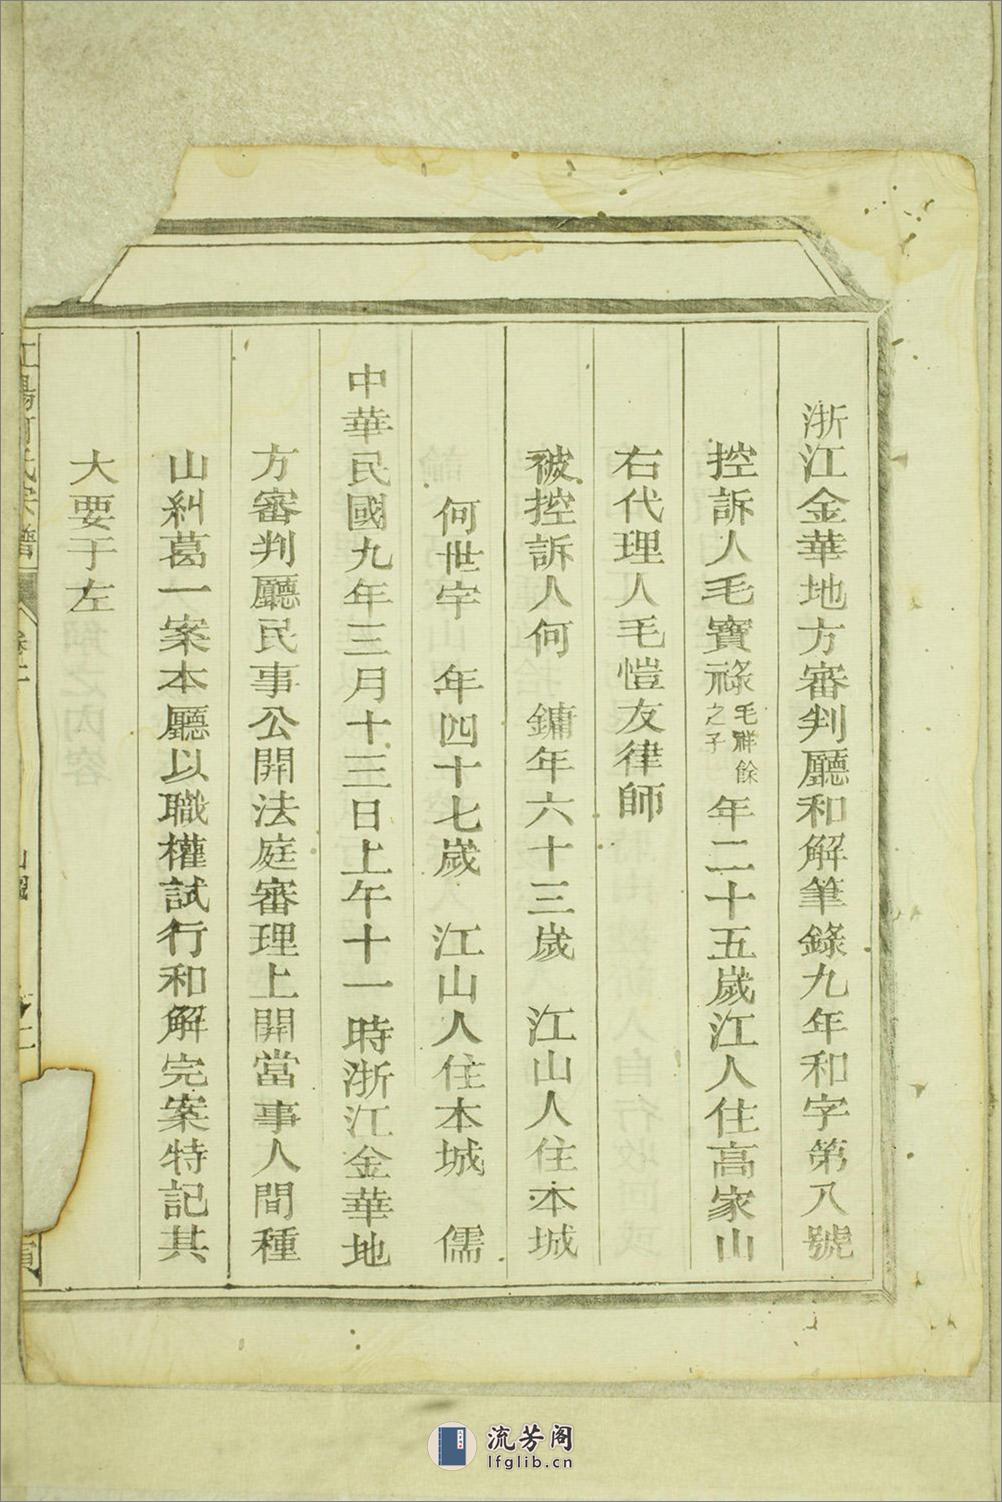 浙江金華地方審判廳和解筆錄九年和字第八號
控訴人毛寶祿毛祥餘之子年二十五歲江人住高家山
右代理人毛愷友律師
被控訴人何 鏞年六十三歲 江山人住本城
何世宇 年四十七歲 江山人住本城 儒
中華民國九年三月十三日上午十一時浙江金華地
方審判廳民事公開法庭審理上開當事人間種
山糾葛一案本廳以職權試行和解完案特記其
大要于左
流芳阁
lfglib.cn